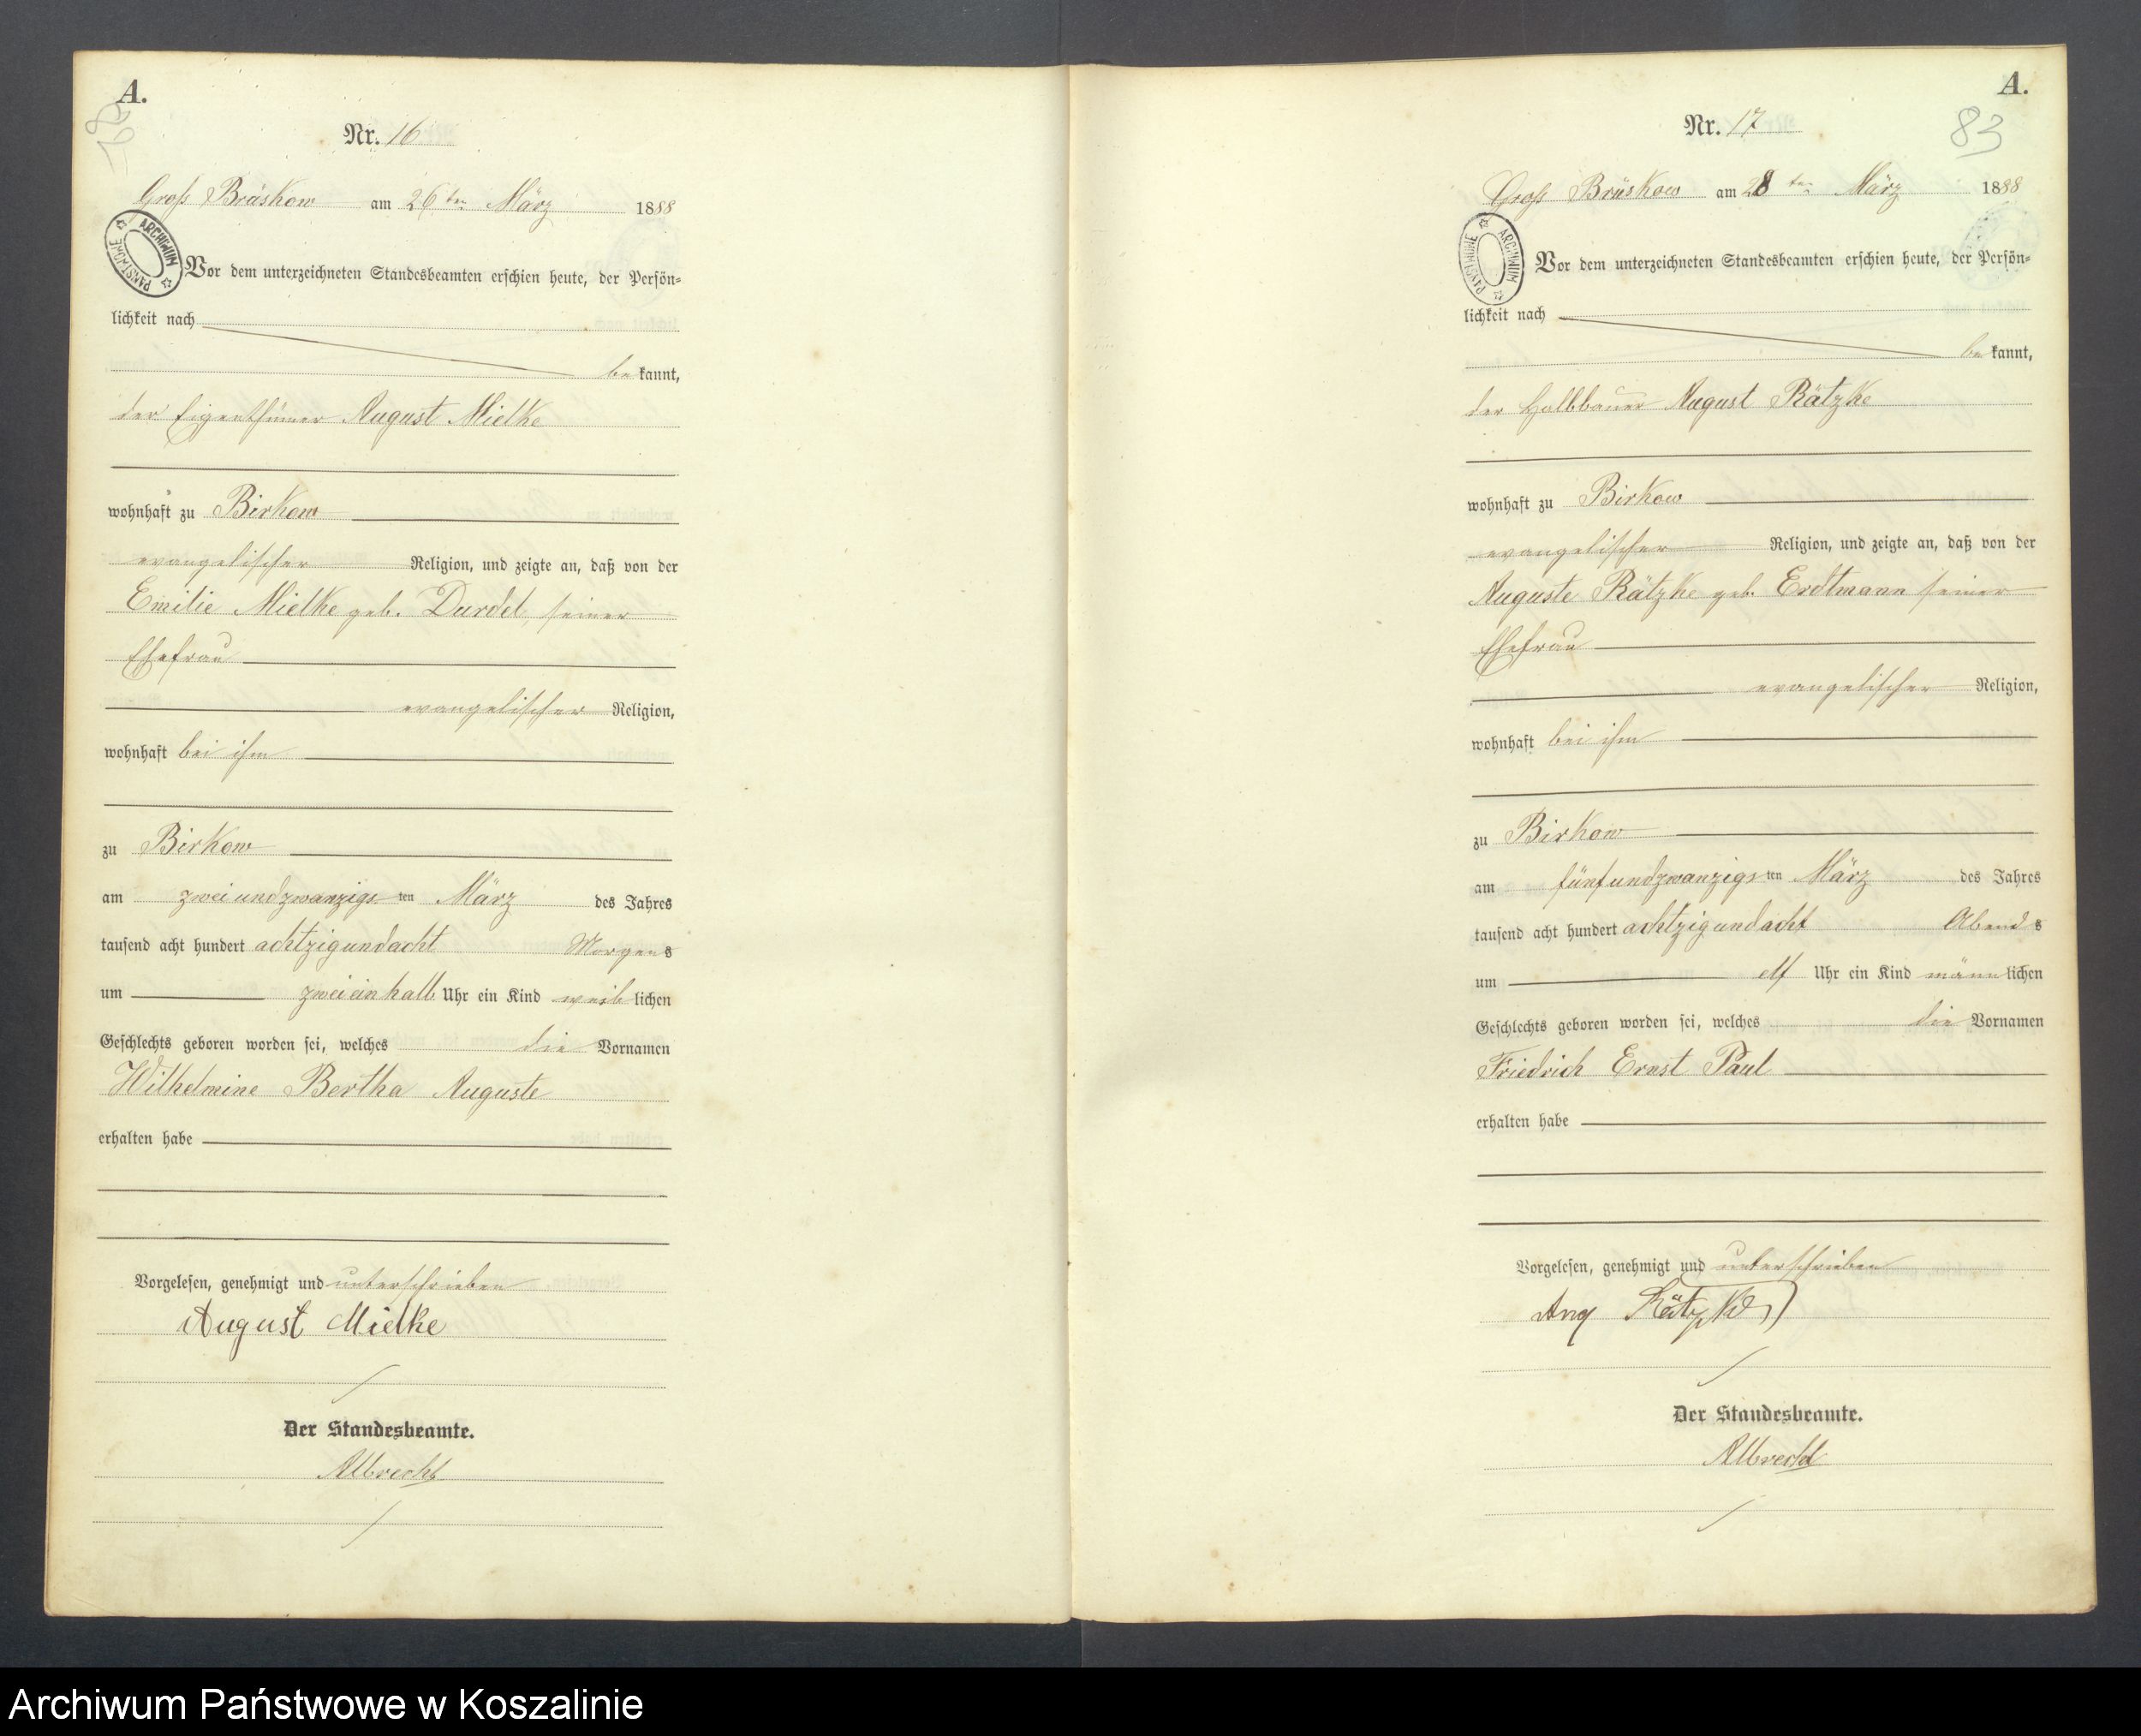 A.
Nr. 16
Groß Brüskow am 26ten März 1888
ARCHIWUM PAŃSTWOWE
Vor dem unterzeichneten Standesbeamten erschien heute, der Persön-
lichkeit nach
bekannt,
der Eigenthümer August Mielke
wohnhaft zu Birkow
evangelischer Religion, und zeigte an, daß von der
Emilie Mielke geb. Durdel, seiner
Ehefrau
evangelischer Religion,
wohnhaft bei ihm
zu Birkow
am zweiundzwanzigsten März des Jahres
tausend acht hundert achtzigundacht Morgens
um zweieinhalb Uhr ein Kind weiblichen
Geschlechts geboren worden sei, welches die Vornamen
Wilhelmine Bertha Auguste
erhalten habe
Vorgelesen, genehmigt und unterschrieben
August Mielke
Der Standesbeamte.
Albrecht
A.
83
Nr. 17
Groß Brüskow am 28ten März 1888
ARCHIWUM PAŃSTWOWE
Vor dem unterzeichneten Standesbeamten erschien heute, der Persön-
lichkeit nach
bekannt,
der Halbbauer August Rätzke
wohnhaft zu Birkow
evangelischer Religion, und zeigte an, daß von der
Auguste Rätzke geb. Erdtmann seiner
Ehefrau
evangelischer Religion,
wohnhaft bei ihm
zu Birkow
am fünfundzwanzigsten März des Jahres
tausend acht hundert achtzigundacht Abends
um elf Uhr ein Kind männlichen
Geschlechts geboren worden sei, welches die Vornamen
Friedrich Ernst Paul
erhalten habe
Vorgelesen, genehmigt und unterschrieben
Aug Rätzke
Der Standesbeamte.
Albrecht
Archiwum Państwowe w Koszalinie